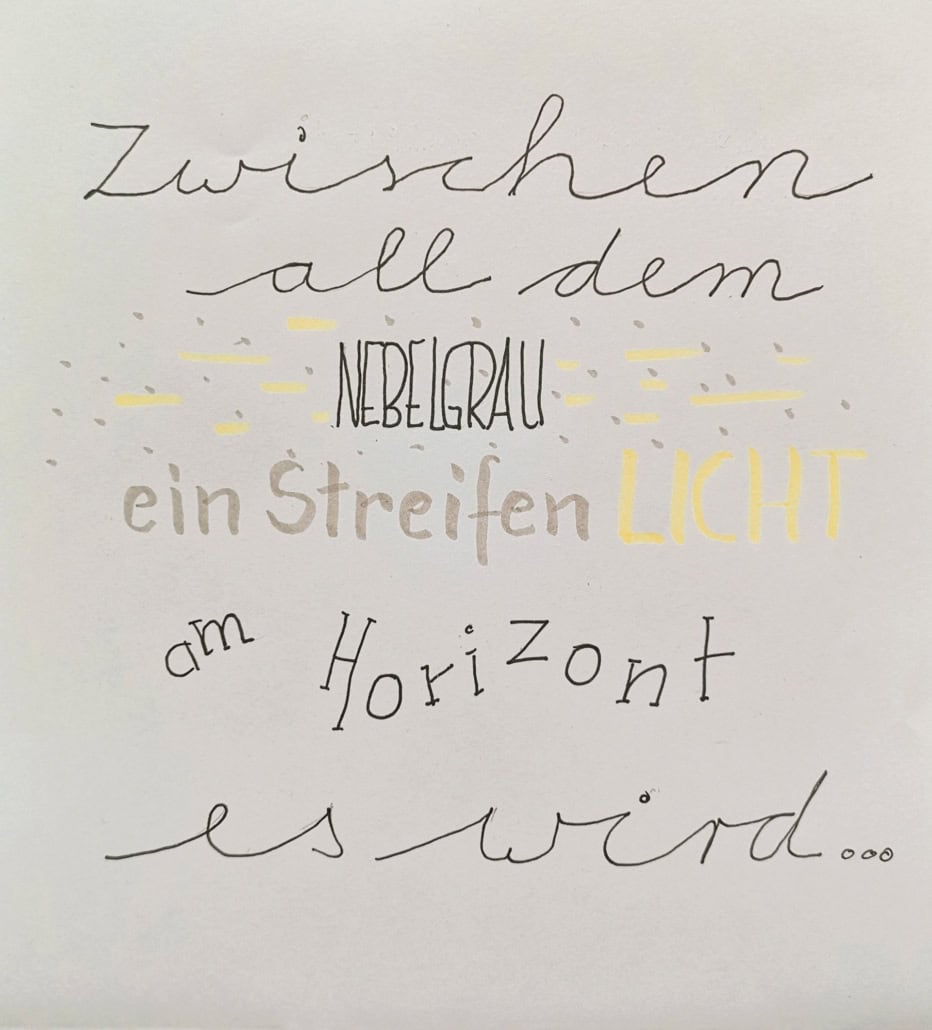 Zwischen
all dem
NEBELGRAU
ein Streifen LICHT
am Horizont
es wird...